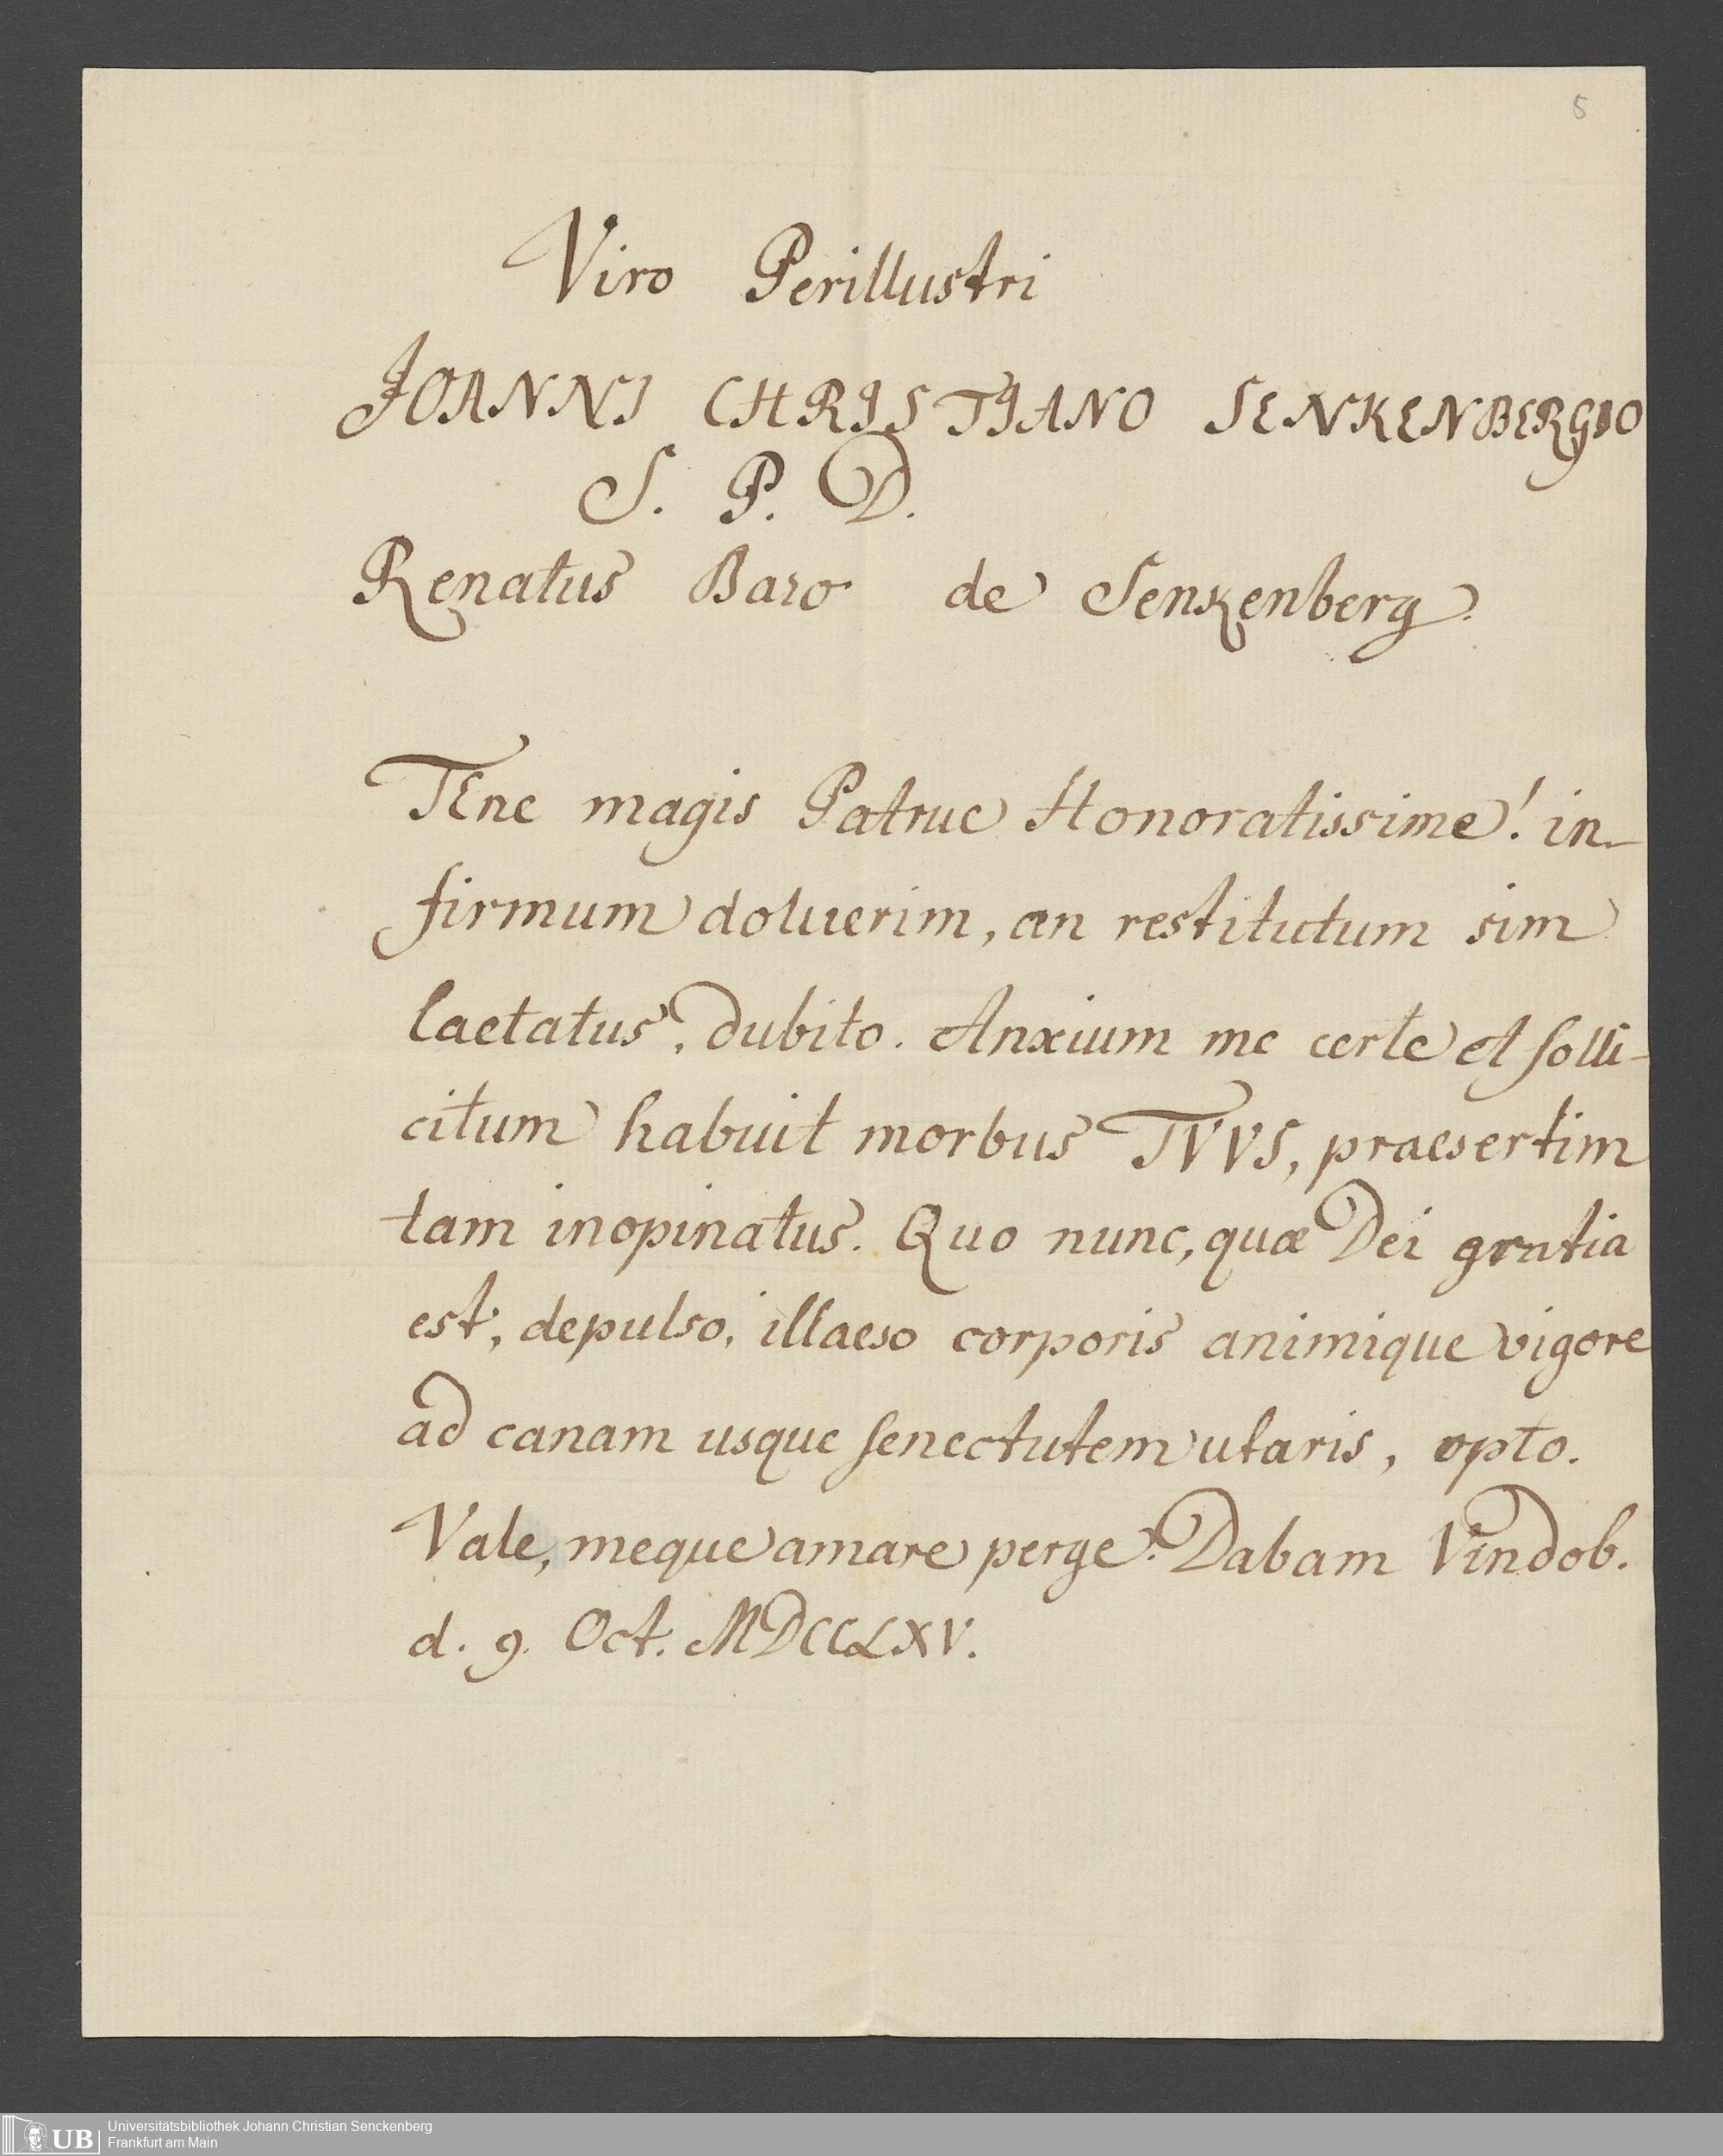 5
Viro Perillustri
JOANNI CHRISTIANO SENKENBERGIO
S. P. D.
Renatus Baro de Senkenberg.
TEne magis Patrue Honoratissime! in-
firmum doluerim, an restitutum sim
laetatus, dubito. Anxium me certe et solli-
citum habuit morbus TVVS, praesertim
tam inopinatus. Quo nunc, quæ Dei gratia
est, depulso, illaeso corporis animique vigore
ad canam usque senectutem utaris, opto.
Vale, meque amare perge. Dabam Vindob.
d. 9. Oct. MDCCLXV.
UB
Universitätsbibliothek Johann Christian Senckenberg
Frankfurt am Main